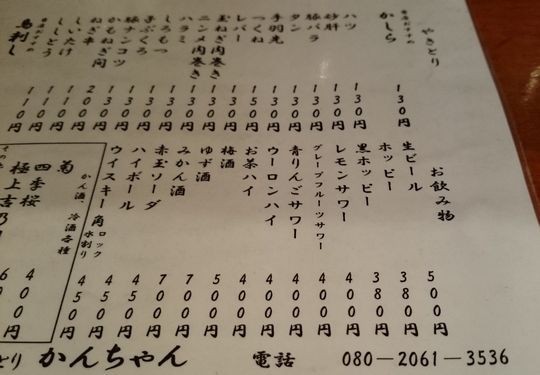 やきとり
当店おすすめ
かしら 130円
ハツ 130円
砂肝 130円
豚バラ 130円
タン 130円
手羽先 130円
つくね 150円
レバー 130円
玉ねぎ肉巻き 130円
ニンニク肉巻き 130円
ハラミ 130円
しろもつ 130円
子ぶくろ 130円
豚ナンコツ 130円
かもねぎ間 200円
ねぎ串 110円
しいたけ 110円
ししとう 110円
当店おすすめ
馬刺し
お飲み物
生ビール 500円
ホッピー 380円
黒ホッピー 380円
レモンサワー 400円
グレープフルーツサワー 400円
青りんごサワー 400円
ウーロンハイ 400円
お茶ハイ 400円
梅酒 400円
ゆず酒 500円
みかん酒 700円
赤玉ソーダ 700円
ハイボール 450円
ウイスキー 角 ロック 水割り 450円
かん酒、冷酒各種
菊
四季桜
極上吉乃
かんちゃん 電話 080―2061―3536